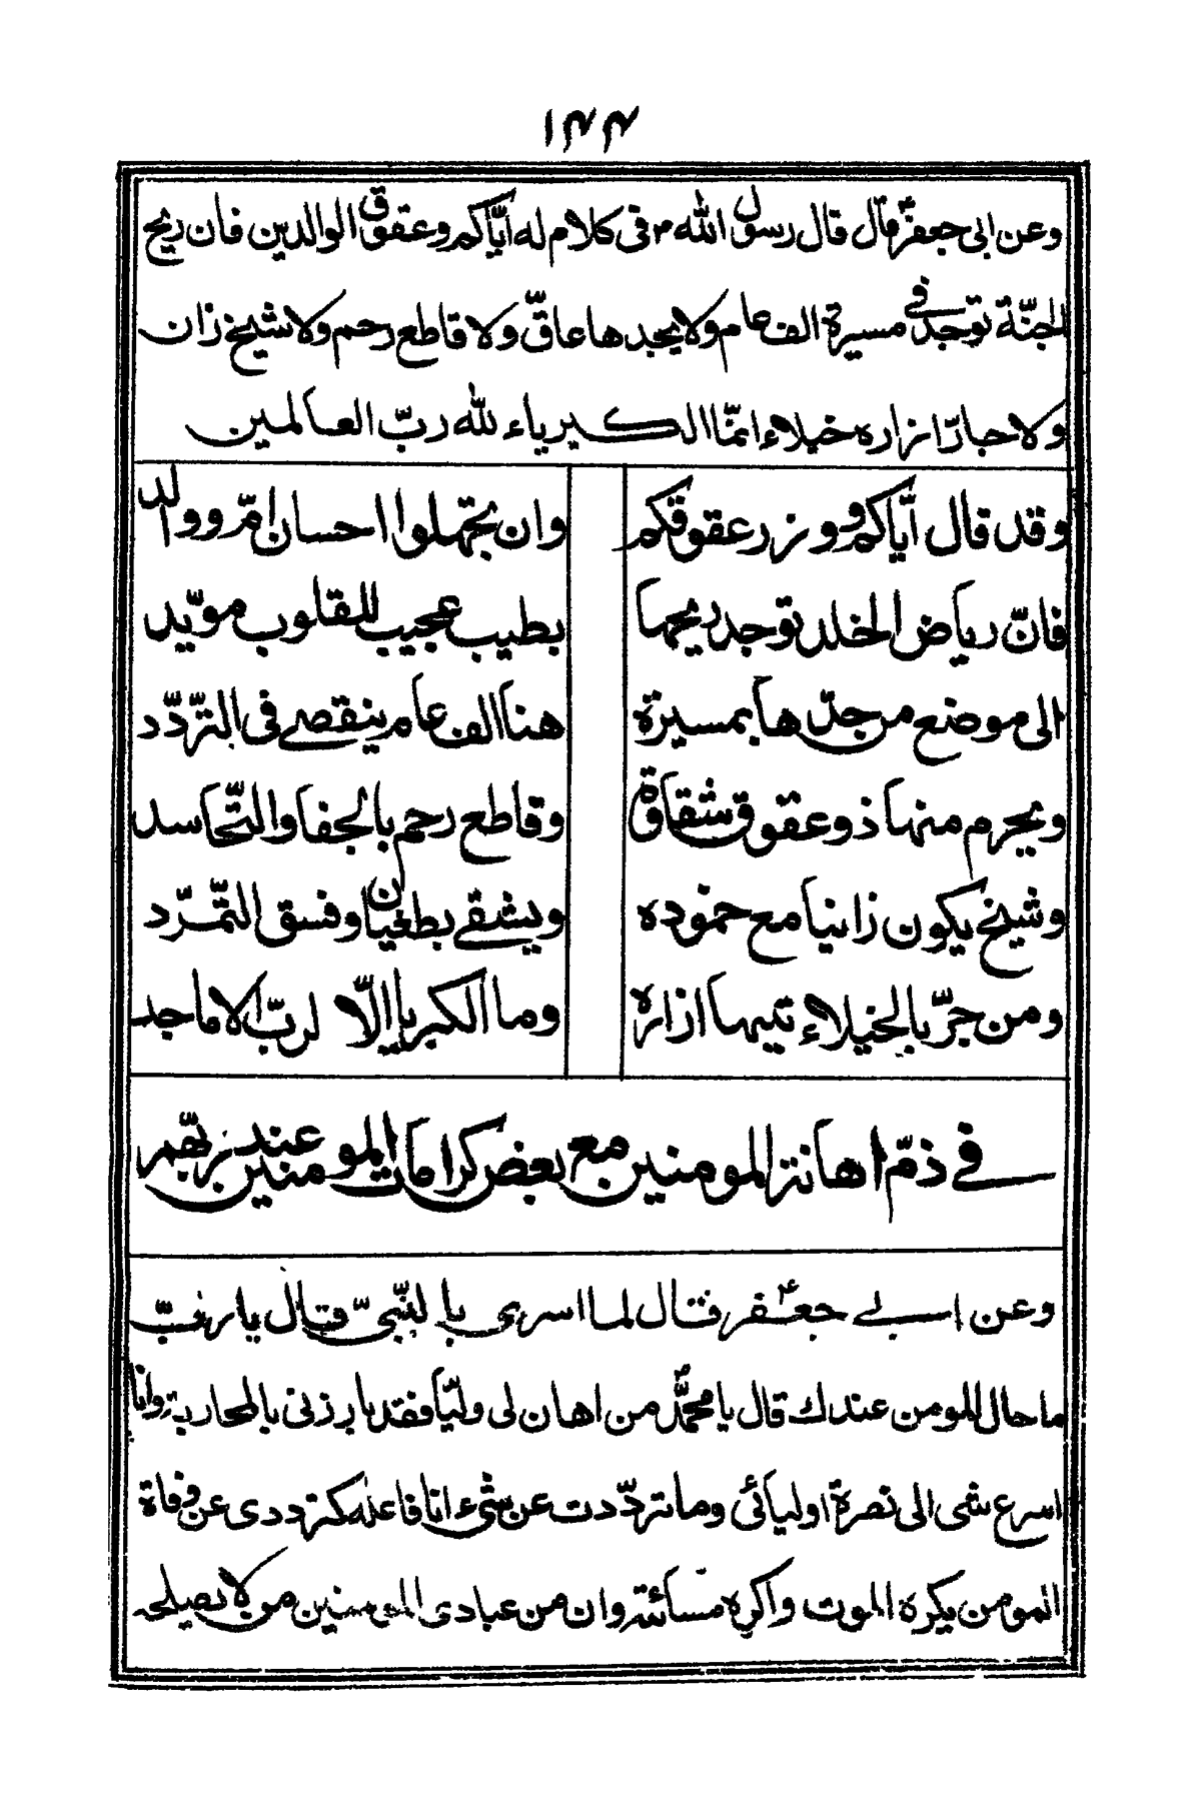 ١٤٤
وعن ابى جعفرؑ قال قال رسول الله ص فى كلام له ايّاكم وعقوق الوالدين فان ريح
الجنّة توجد فى مسيرة الف عام ولا يجدها عاقّ ولا قاطع رحم ولا شيخ زان
ولا جارّ ازاره خيلاء انمّا الكبرياء لله ربّ العالمين
وقد قال ايّاكم و وزر عقوقكم وان تجملوا احسان امّ ووالد
فانّ رياض الخلد توجد ريحها بطيب عجيب للقلوب مويّد
الى موضع من جدّها بمسيرة هنا الف عام ينقصى فى التردّد
ويحرم منها ذو عقوق شقاق وقاطع رحم بالجفا والتحاسد
وشيخ يكون زانيا مع خموده ويشقى بطغيان وفسق التمرّد
ومن جرّ بالخيلاء تيها ازاره وما الكبر يا الّا لربّ الاماجد
فى ذمّ اهانة المومنين مع بعض كرامات المومنين عند ربّهم
وعن ابى جعفرؑ قال لما اسرى بالنّبىّ قال يا ربّ
ما حال المومن عندك قال يا محمّد من اهان لى وليّا فقد بارزنى بالمحاربة وانا
اسرع شى الى نصرة اوليائى وما تردّدت عن شىء انا فاعله كترددى عن وفاة
المومن يكره الموت واكره مسائته وان من عبادى المومنين من لا يصلحه